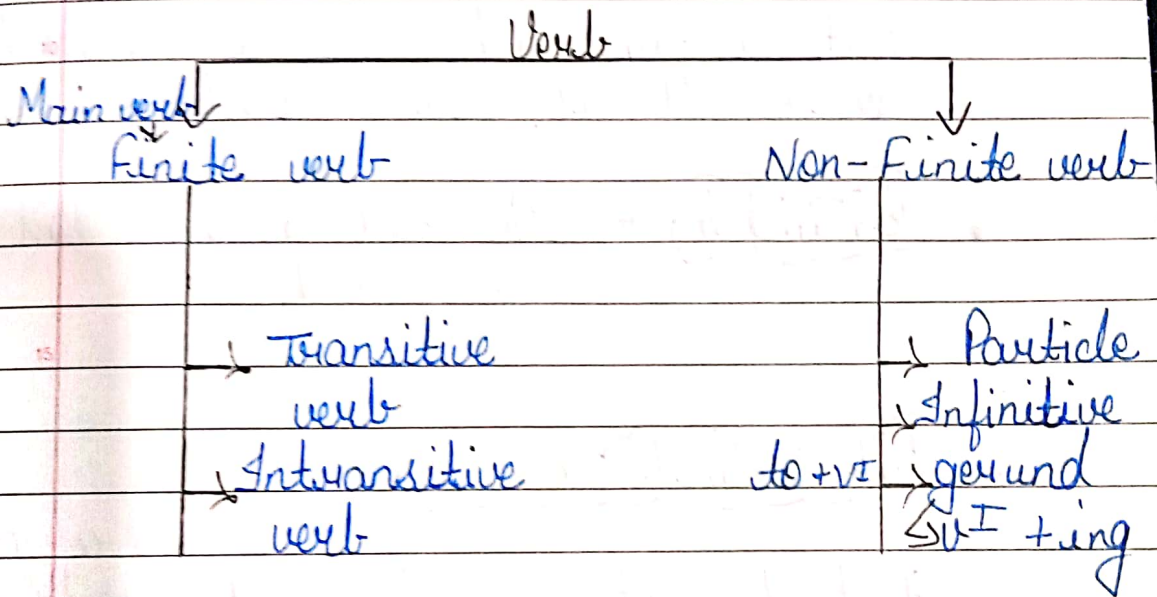 Verb
Main verb
Finite verb
Non-Finite verb
Transitive
verb
Intransitive
verb
Particle
Infinitive
to + VI
gerund
vI + ing